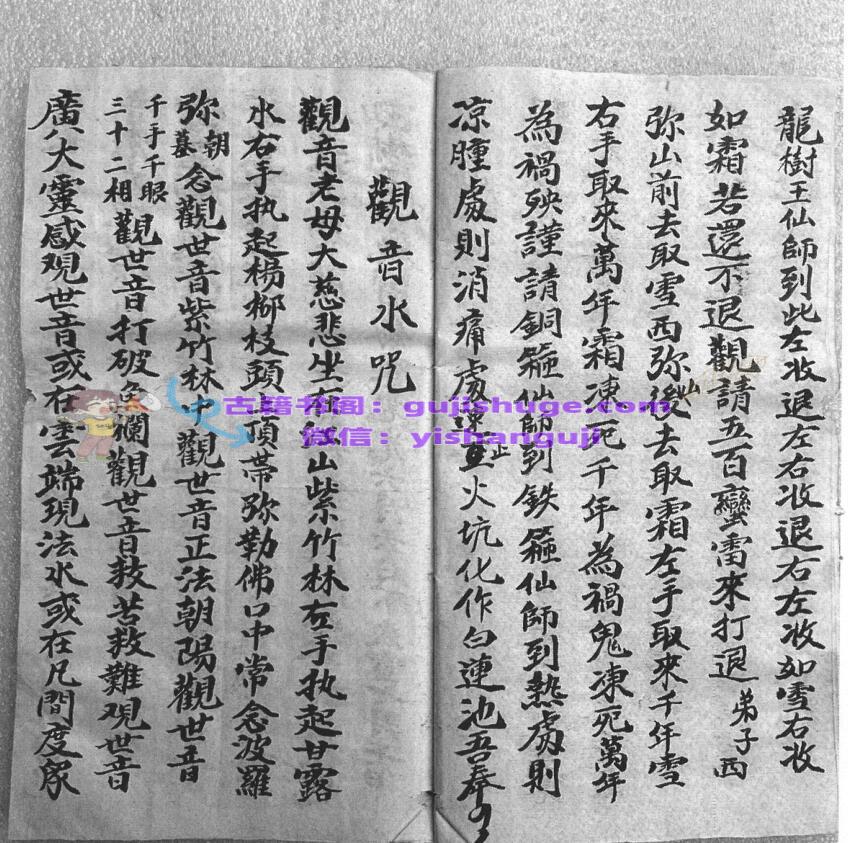 龍樹王仙師到此左收退左右收退右左收如雪右收
如霜若還不退觀請五百蠻雷來打退弟子西
弥山前去取雪西弥山後去取霜左手取來千年雪
右手取來萬年霜凍死千年為禍鬼凍死萬年
為禍殃謹請銅箍仙師到鉄箍仙師到熱處則
凉腫處則消痛處止火坑化作白蓮池吾奉
觀音水咒
觀音老母大慈悲坐在山紫竹林左手执起甘露
水右手执起楊柳枝頭頂帶弥勒佛口中常念波羅
弥朝暮念觀世音紫竹林中觀世音正法朝陽觀世音
千手千眼三十二相觀世音打破欄觀世音救苦救難观世音
廣大靈感观世音或在雲端現法水或在凡間度众
古籍书阁：gujishuge.com
微信：yishanguji